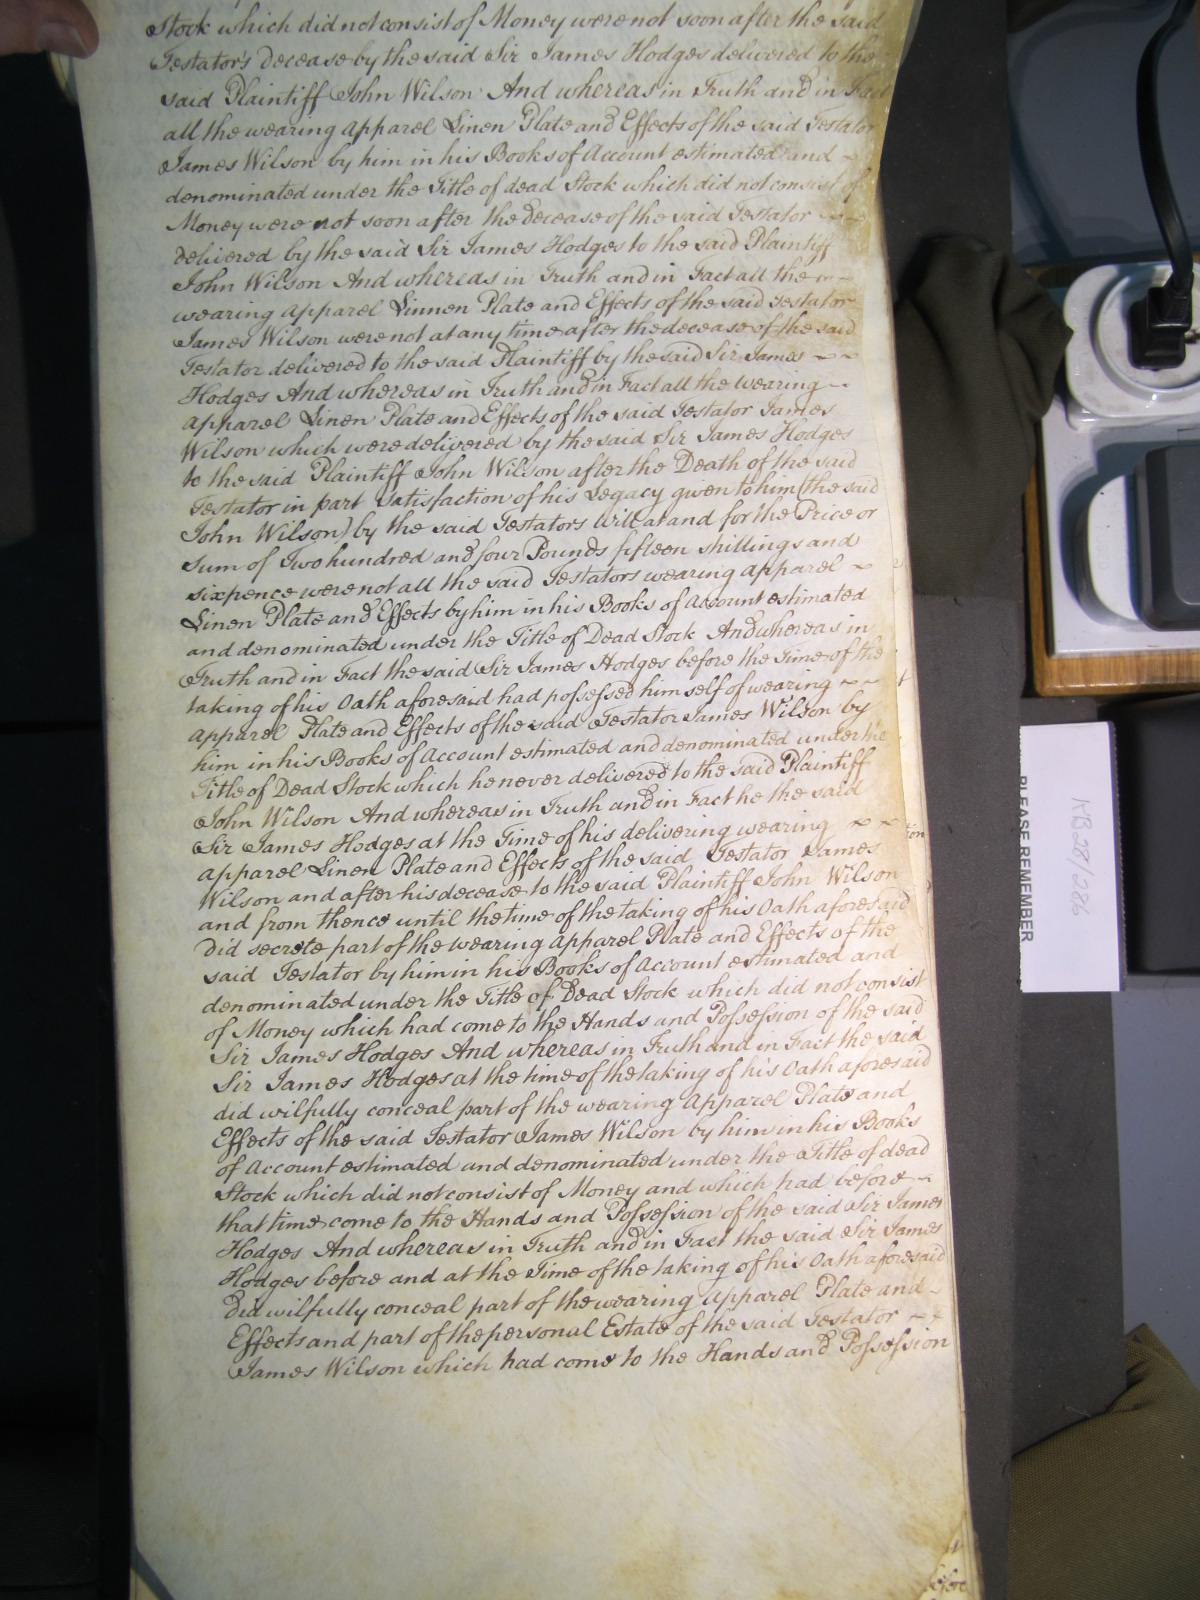 Stock which did not consist of Money were not soon after the said
Testator's decease by the said Sir James Hodges delivered to the
said Plaintiff John Wilson And whereas in Truth and in Fact
all the wearing Apparel Linen Plate and Effects of the said Testator
James Wilson by him in his Books of Account estimated and ~
denominated under the Title of dead Stock which did not consist of
Money were not soon after the decease of the said Testator ~ ~
delivered by the said Sir James Hodges to the said Plaintiff
John Wilson And whereas in Truth and in Fact all the ~ ~
wearing Apparel Linnen Plate and Effects of the said Testator
James Wilson were not at any time after the decease of the said
Testator delivered to the said Plaintiff by the said Sir James ~ ~
Hodges And whereas in Truth and in Fact all the wearing ~ ~
Apparel Linen Plate and Effects of the said Testator James
Wilson which were delivered by the said Sir James Hodges
to the said Plaintiff John Wilson after the Death of the said
Testator in part Satisfaction of his Legacy given to him (the said
John Wilson) by the said Testators Will at and for the Price or
Sum of Two hundred and four Pounds fifteen shillings and
sixpence were not all the said Testators wearing Apparel ~
Linen Plate and Effects by him in his Books of Account estimated
and denominated under the Title of Dead Stock And whereas in
Truth and in Fact the said Sir James Hodges before the Time of the
taking of his Oath aforesaid had possessed himself of wearing ~ ~
Apparel Plate and Effects of the said Testator James Wilson by
him in his Books of Account estimated and denominated under the
Title of Dead Stock which he never delivered to the said Plaintiff
John Wilson And whereas in Truth and in Fact he the said
Sir James Hodges at the Time of his delivering wearing ~ ~
Apparel Linen Plate and Effects of the said Testator James
Wilson and after his decease to the said Plaintiff John Wilson
and from thence until the time of the taking of his Oath aforesaid
did secrete part of the wearing Apparel Plate and Effects of the
said Testator by him in his Books of Account estimated and
denominated under the Title of Dead Stock which did not consist
of Money which had come to the Hands and Possession of the said
Sir James Hodges And whereas in Truth and in Fact the said
Sir James Hodges at the time of the taking of his Oath aforesaid
did wilfully conceal part of the wearing Apparel Plate and
Effects of the said Testator James Wilson by him in his Books
of Account estimated and denominated under the Title of dead
Stock which did not consist of Money and which had before ~
that time come to the Hands and Possession of the said Sir James
Hodges And whereas in Truth and in Fact the said Sir James
Hodges before and at the Time of the taking of his Oath aforesaid
Did wilfully conceal part of the wearing Apparel Plate and ~
Effects and part of the personal Estate of the said Testator ~ ~
James Wilson which had come to the Hands and Possession
before
PLEASE REMEMBER
KB 28/286